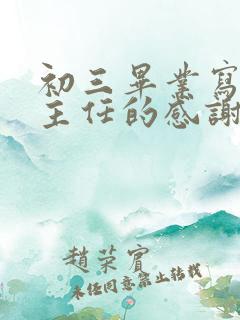 初三畢業寫
主任的感謝
趙荣賓
未任同意禁止转载